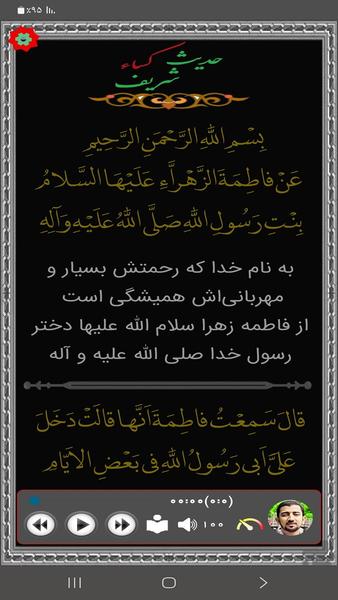 ٪۹۵
حدیث کساء
شریف
بِسْمِ اللهِ الرَّحْمَنِ الرَّحِیمِ
عَنْ فاطِمَةَ الزَّهْرآءِ عَلَیْهَا السَّلامُ
بِنْتِ رَسُولِ اللهِ صَلَّى اللهُ عَلَیْهِ وَآلِهِ
به نام خدا که رحمتش بسیار و
مهربانی‌اش همیشگی است
از فاطمه زهرا سلام الله علیها دختر
رسول خدا صلی الله علیه و آله
قالَ سَمِعْتُ فاطِمَةَ اَنَّها قالَتْ دَخَلَ
عَلَىَّ اَبى رَسُولُ اللهِ فى بَعْضِ الاَیّامِ
۰۰:۰۰(۰:۰)
۱۰۰